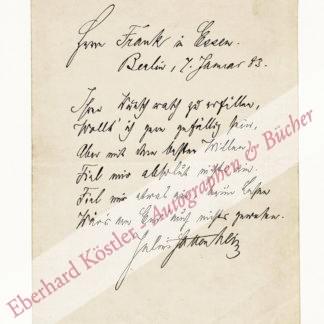 Herrn Frank in Essen.
Berlin, 7. Januar 83.
Ihren Wunsch rasch zu erfüllen,
Wollt' ich gern gefällig sein,
Aber mit dem besten Willen
Fiel mir absolut nichts ein.
Fiel mir etwas ein, beim Lesen
Wär's am End' auch nichts gewesen.
Julius Stettenheim
Eberhard Köstler - Autographen & Bücher